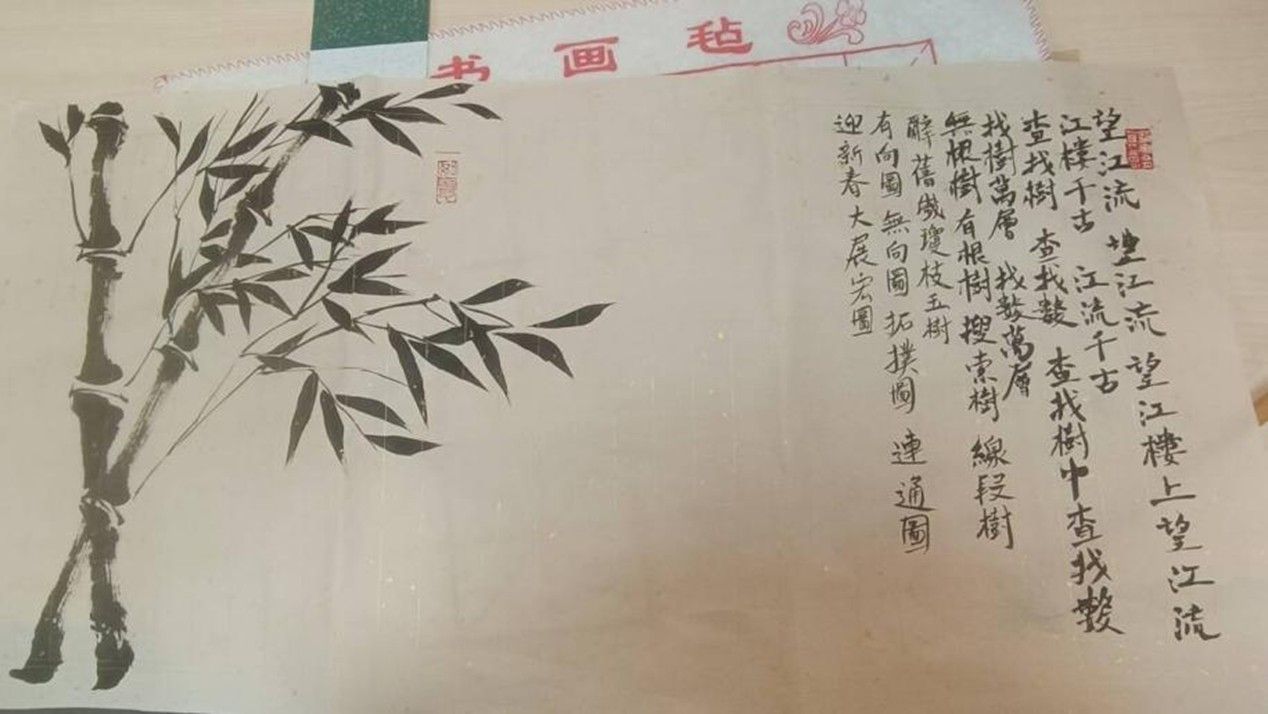 书画毡
望江流 望江流 望江樓上望江流
江樓千古 江流千古
查找樹 查找數 查找樹中查找數
找樹萬層 找數萬層
無根樹 有根樹 搜索樹 線段樹
辭舊歲瓊枝玉樹
有向圖 無向圖 拓撲圖 連通圖
迎新春大展宏圖